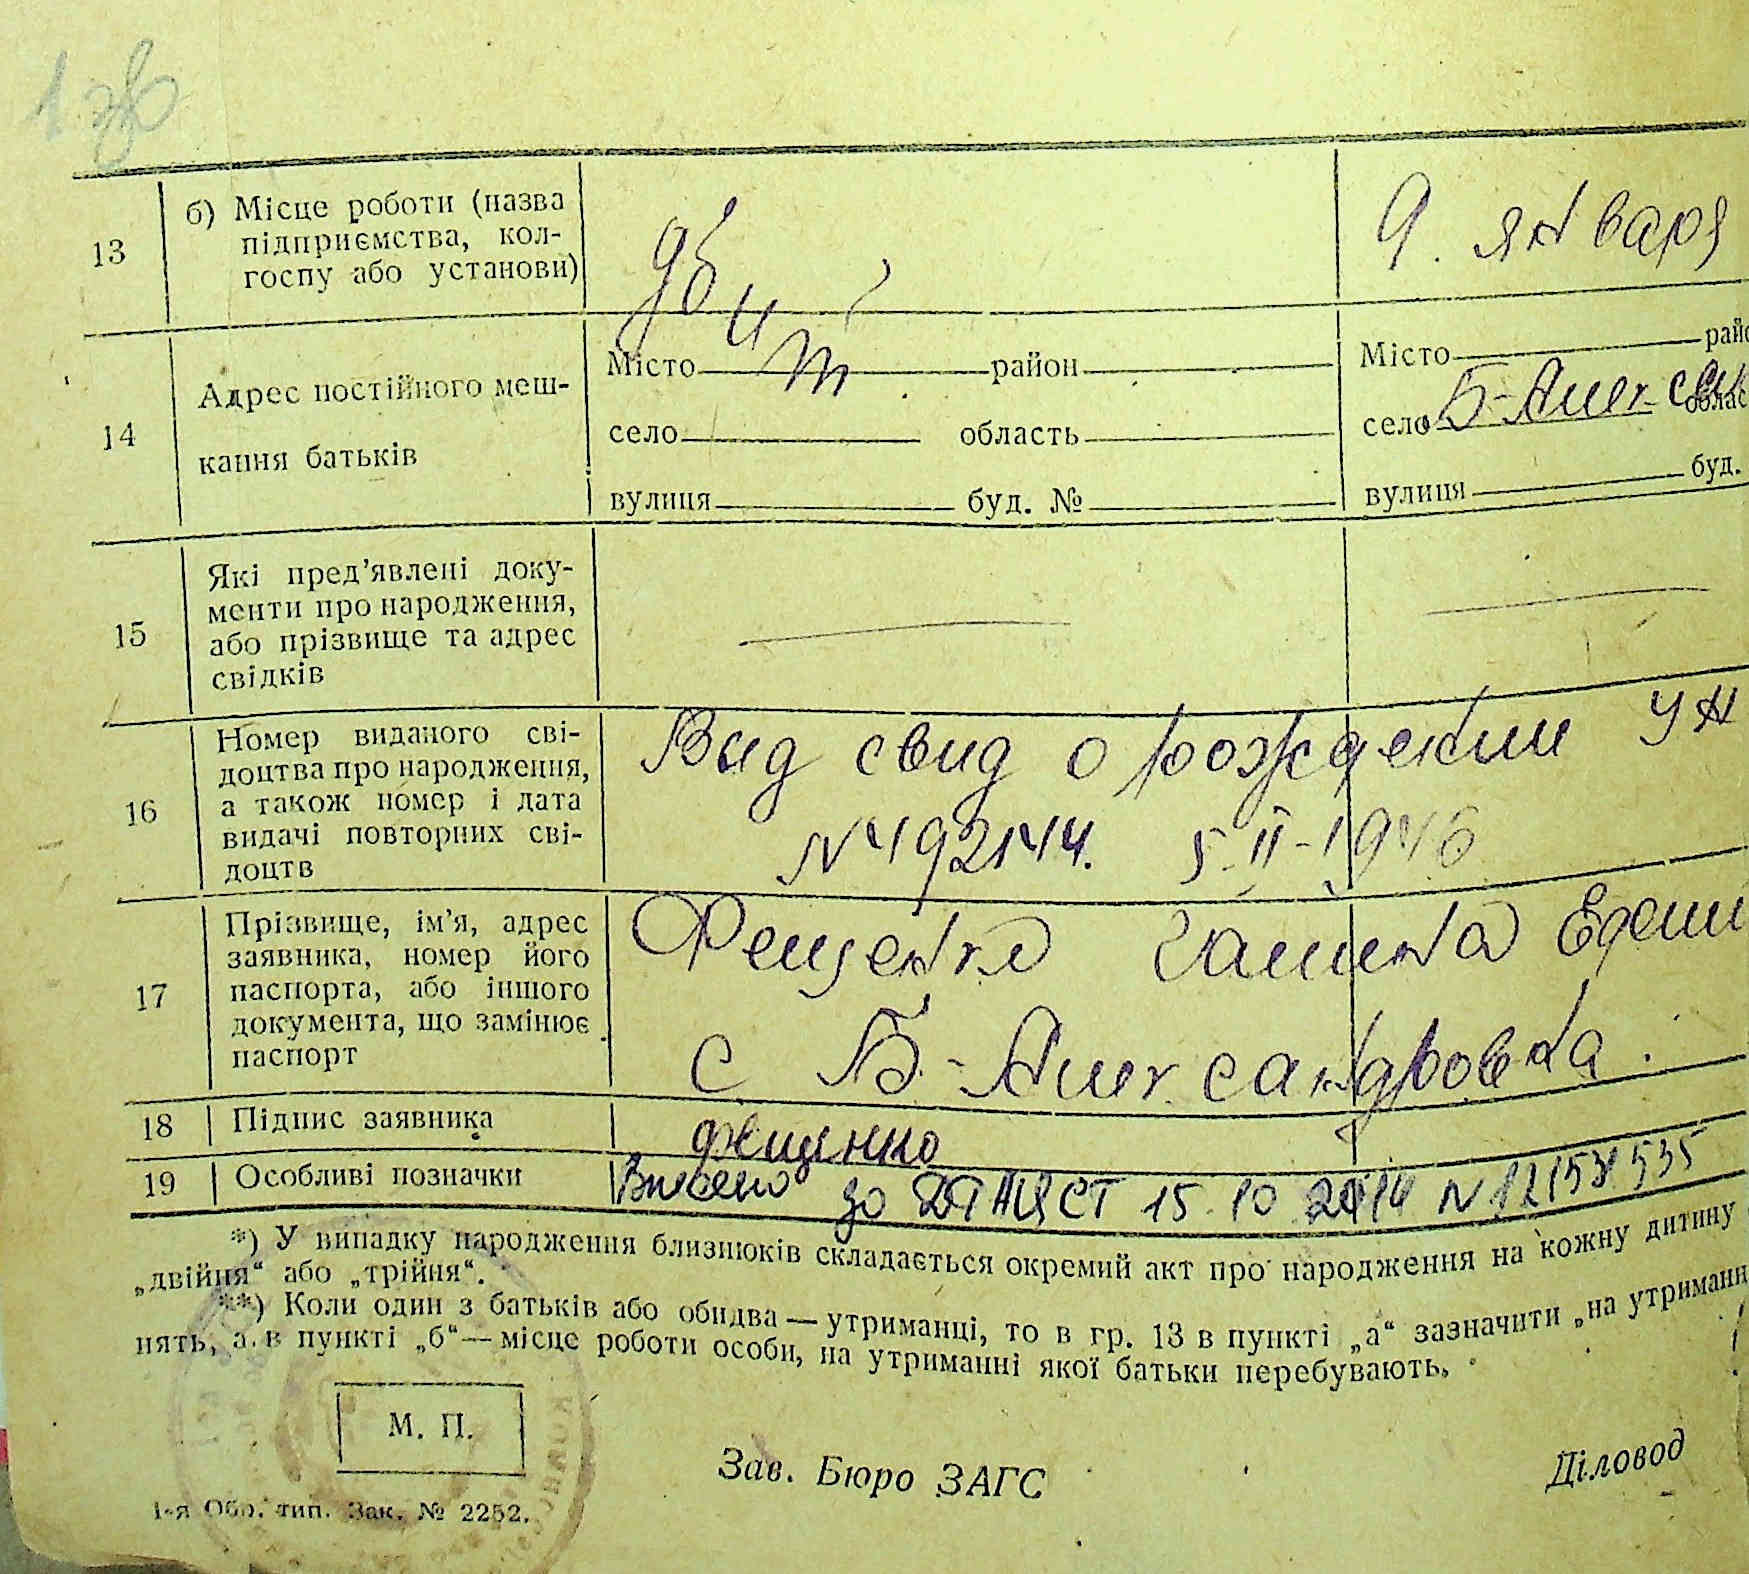 1 зв
13 б) Місце роботи (назва підприємства, кол-госпу або установи) убит 9. января
14 Адрес постійного меш-кання батьків
Місто район
село область
вулиця буд. №
Місто райо
село Б-Алексан облас
вулиця буд.
15 Які пред’явлені доку-
менти про народження,
або прізвище та адрес
свідків
16 Номер виданого сві-
доцтва про народження,
а також номер і дата
видачі повторних сві-
доцтв
Выд свид о рождении УН
№ 492144. 5-II-1946
17 Прізвище, ім’я, адрес
заявника, номер його
паспорта, або іншого
документа, що замінює
паспорт
Фещенко Галина
с Б-Александровка.
18 Підпис заявника Фещенко
19 Особливі позначки Внесено до ДРАЦСТ 15.10 2014 N
*) У випадку народження близнюків складається окремий акт про народження на кожну дитину
„двійня“ або „трійня“.
**) Коли один з батьків або обидва — утриманці, то в гр. 13 в пункті „а“ зазначити „на утриманн
нять, а в пункті „б“ — місце роботи особи, на утриманні якої батьки перебувають.
М. П.
Зав. Бюро ЗАГС
Діловод
1-я Обр. тип. Зак. № 2252.